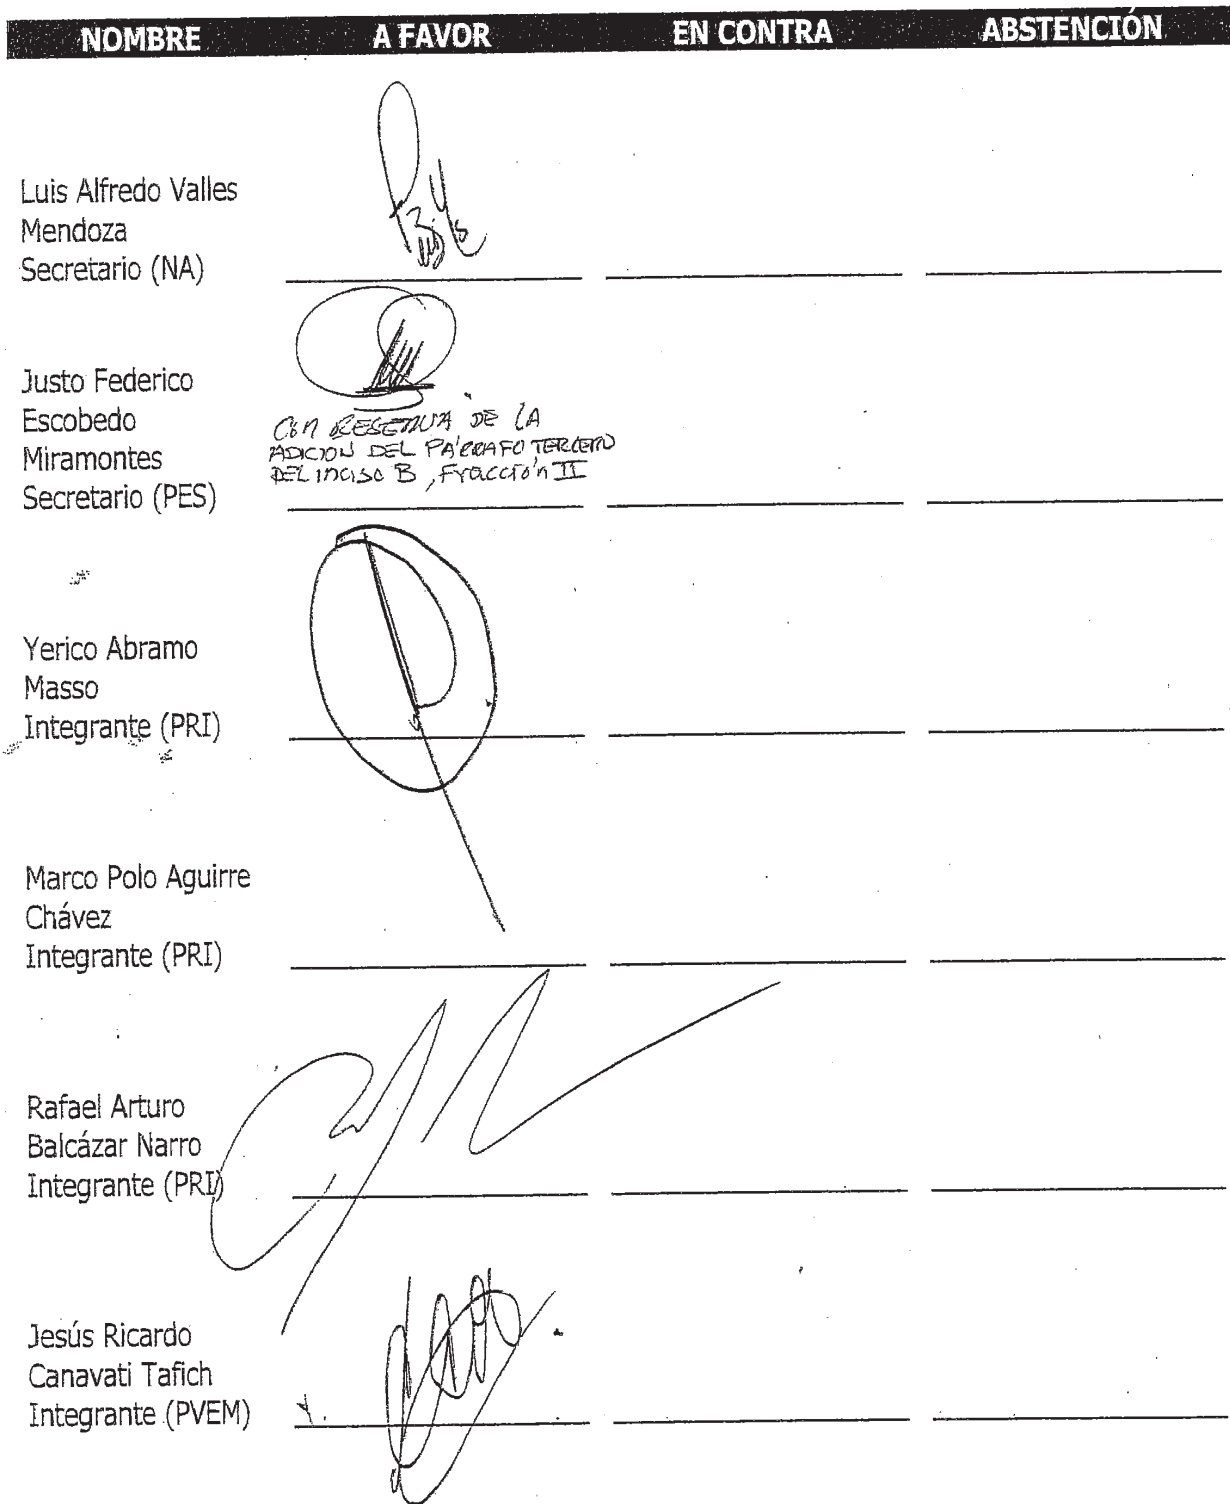 NOMBRE A FAVOR EN CONTRA ABSTENCIÓN
Luis Alfredo Valles
Mendoza
Secretario (NA)
Justo Federico
Escobedo
Miramontes
Secretario (PES)
CON RESERVA DE LA
ADICION DEL PÁRRAFO TERCERO
DEL INCISO B, Fracción II
Yerico Abramo
Masso
Integrante (PRI)
Marco Polo Aguirre
Chávez
Integrante (PRI)
Rafael Arturo
Balcázar Narro
Integrante (PRI)
Jesús Ricardo
Canavati Tafich
Integrante (PVEM)